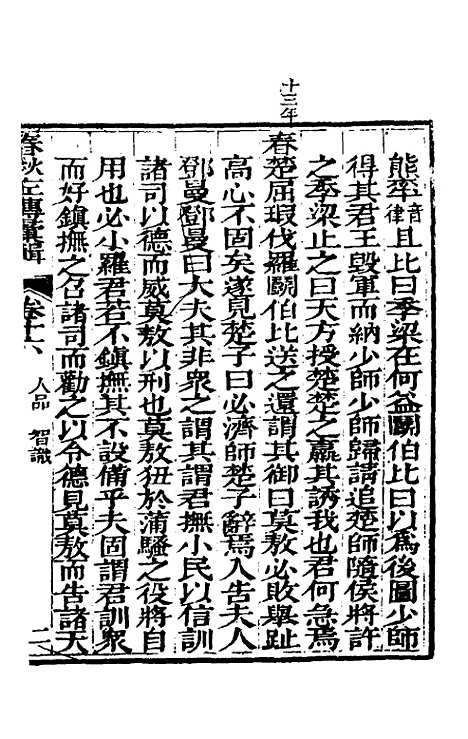 熊率音律且比曰季梁在何益鬭伯比曰以爲後圖少師
得其君王毀軍而納少師少師歸請追楚師隨侯將許
之季梁止之曰天方授楚楚之羸其誘我也君何急焉
十三年
春楚屈瑕伐羅鬭伯比送之還謂其御曰莫敖必敗舉趾
高心不固矣遂見楚子曰必濟師楚子辭焉入告夫人
鄧曼鄧曼曰大夫其非衆之謂其謂君撫小民以信訓
諸司以德而威莫敖以刑也莫敖狃於蒲騷之役將自
用也必小羅君若不鎮撫其不設備乎夫固謂君訓衆
而好鎮撫之召諸司而勸之以令德見莫敖而告諸天
春秋左傳彙輯
卷十六
人品
智識
二